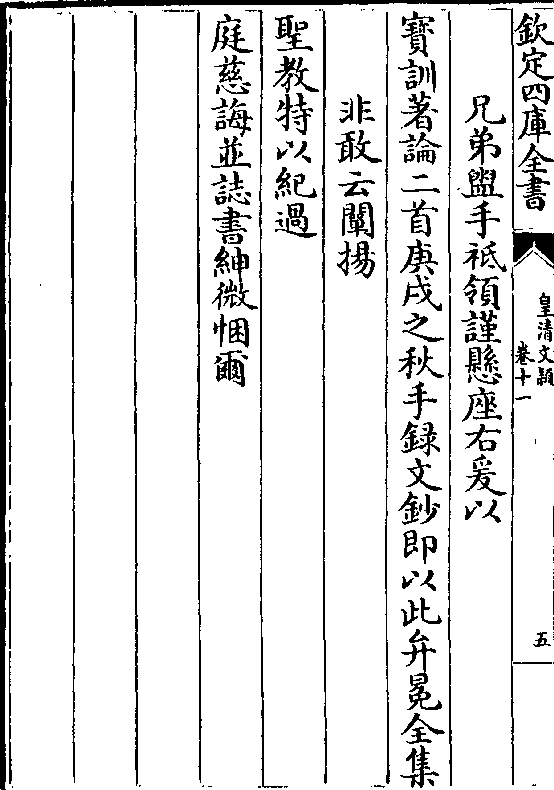 欽定四庫全書
皇清文頴
卷十一
五
兄弟盥手祗領謹懸座右爰以
寳訓著論二首庚戌之秋手録文鈔即以此弁冕全集
非敢云闡揚
聖教特以紀過
庭慈誨並誌書紳微悃爾